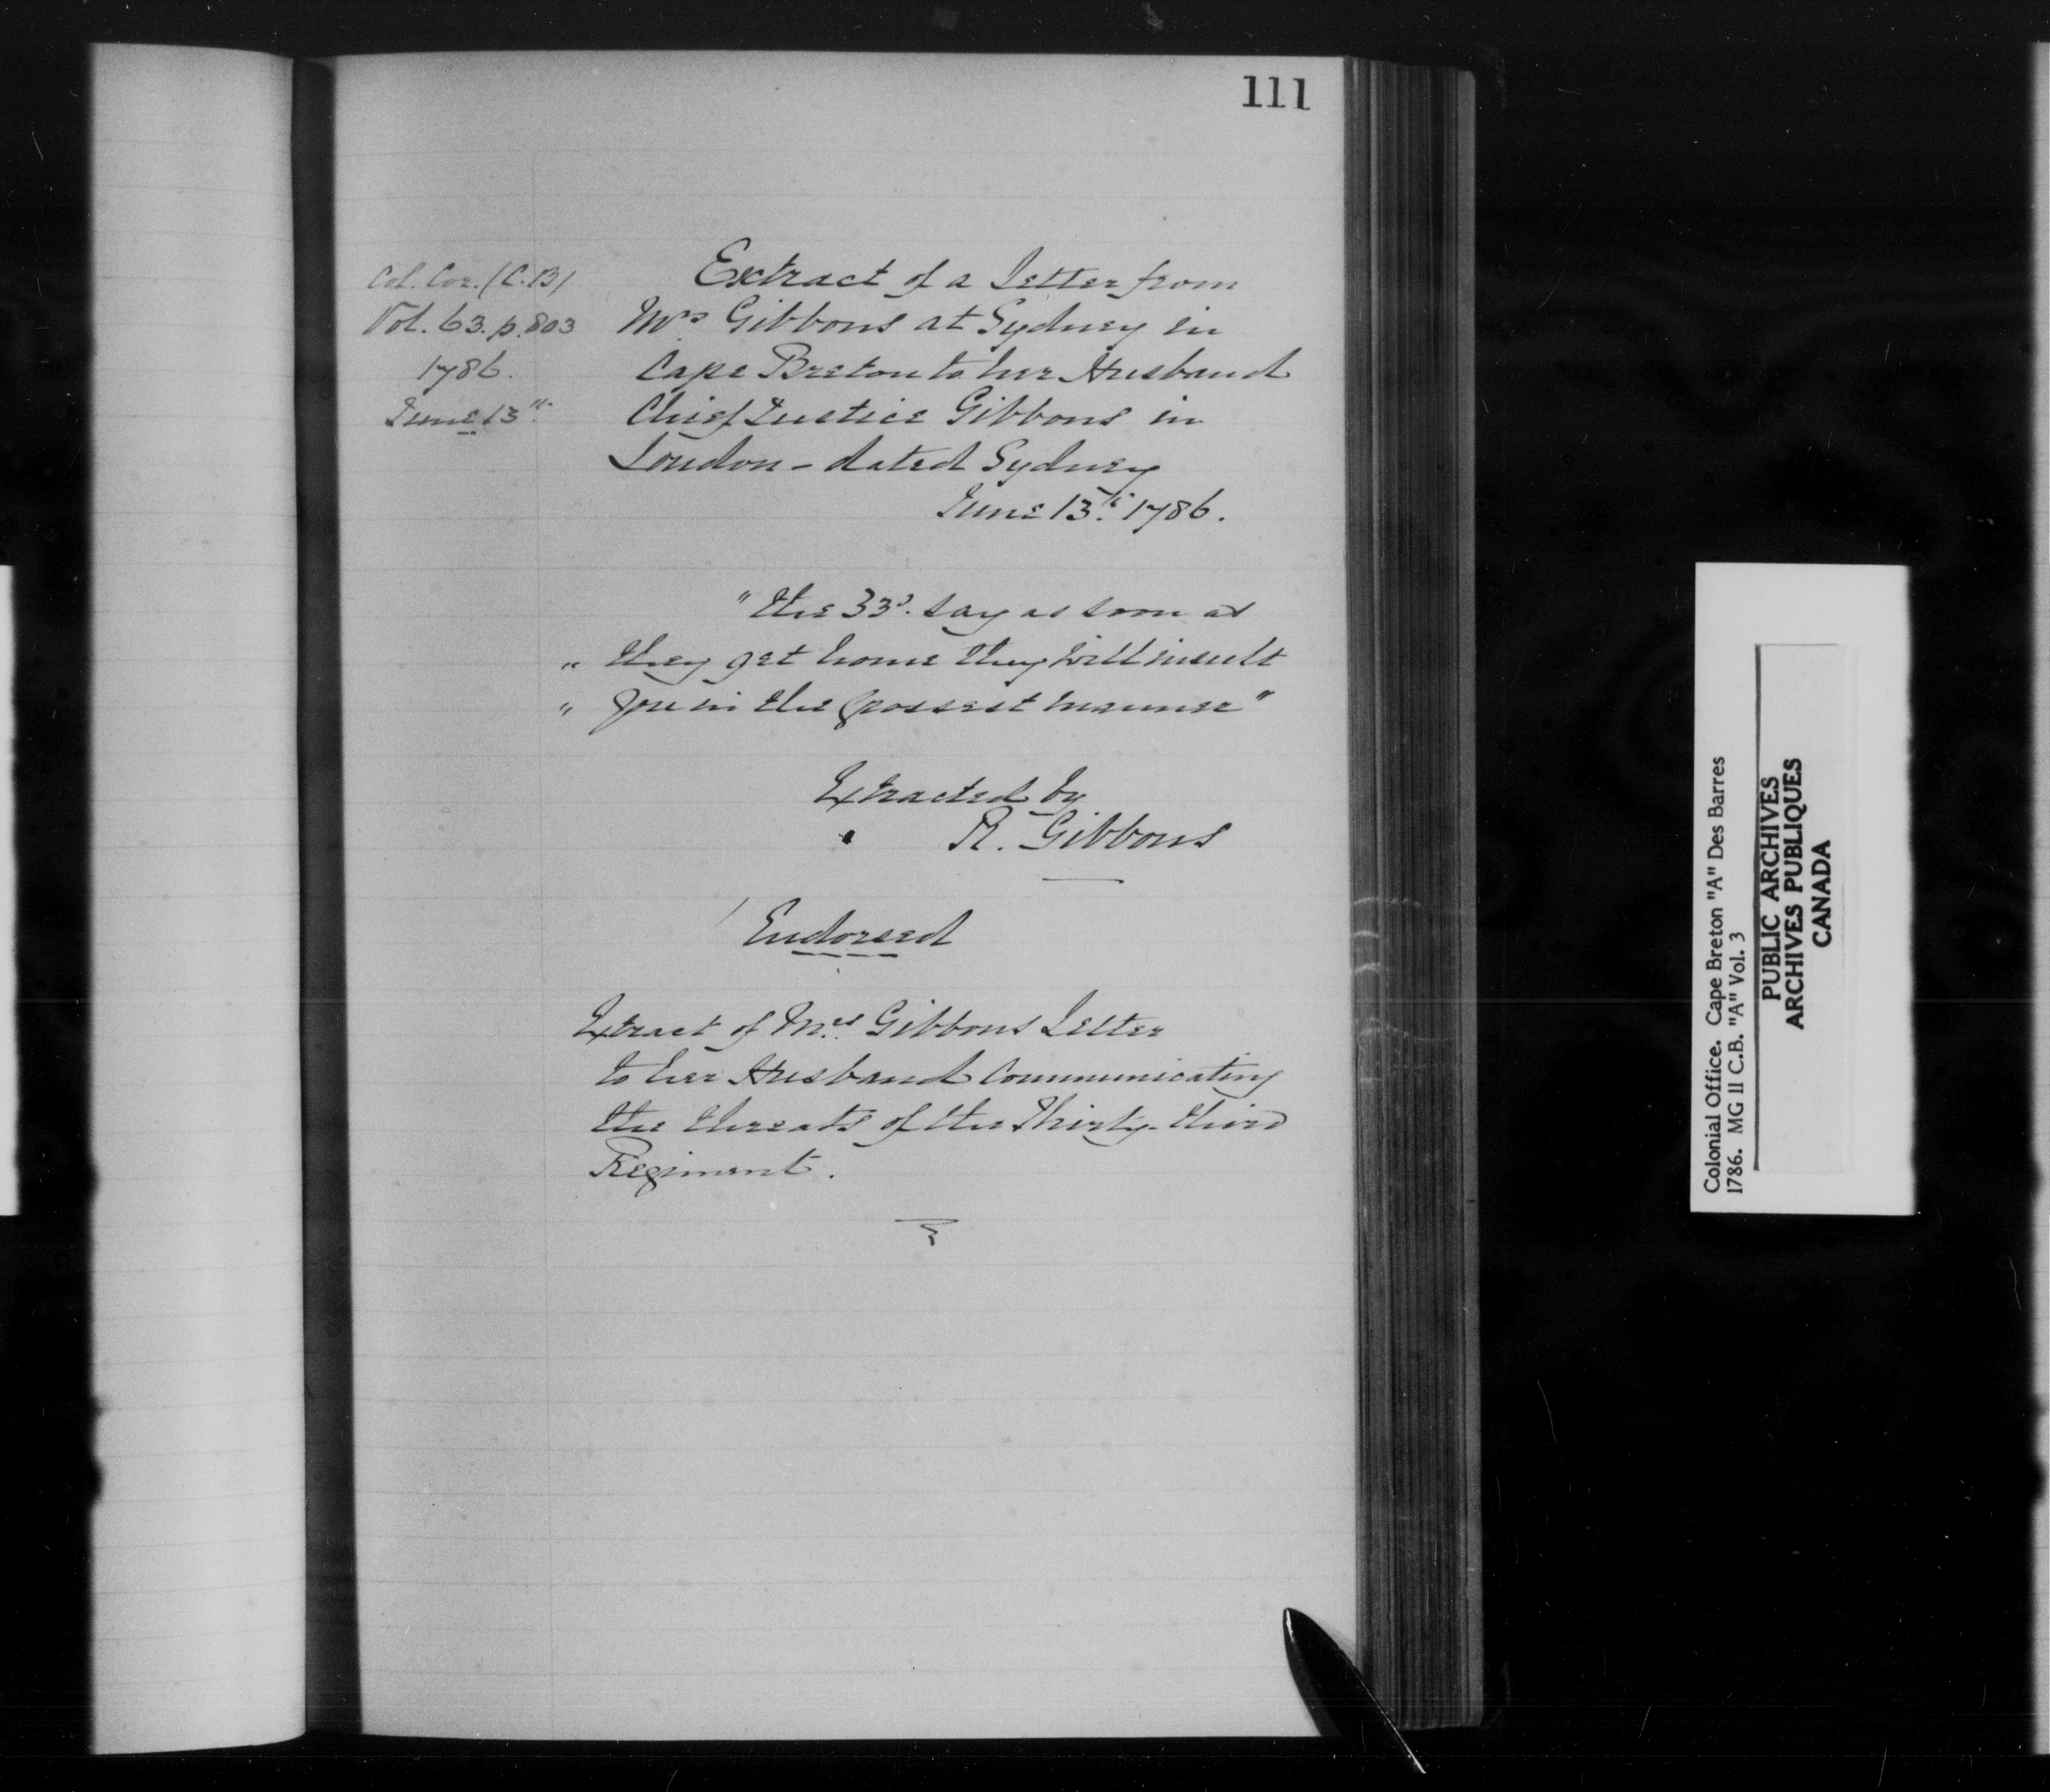 111
Col. Cor. (C.B)
Vol. 63. p. 803
1786.
June 13th.
Extract of a Letter from
Mrs Gibbons at Sydney in
Cape Breton to her Husband
Chief Justice Gibbons in
London - dated Sydney
June 13th. 1786.
"the 33d. say as soon as
" they get home they will insult
" you in the grossest manner"
Extracted by
R. Gibbons
Endorsed
Extract of Mrs. Gibbons Letter
to her Husband Communicating
the threats of the Thirty-third
Regiment.
Colonial Office. Cape Breton "A" Des Barres
1786. MG 11 C.B. "A" Vol. 3
PUBLIC ARCHIVES
ARCHIVES PUBLIQUES
CANADA